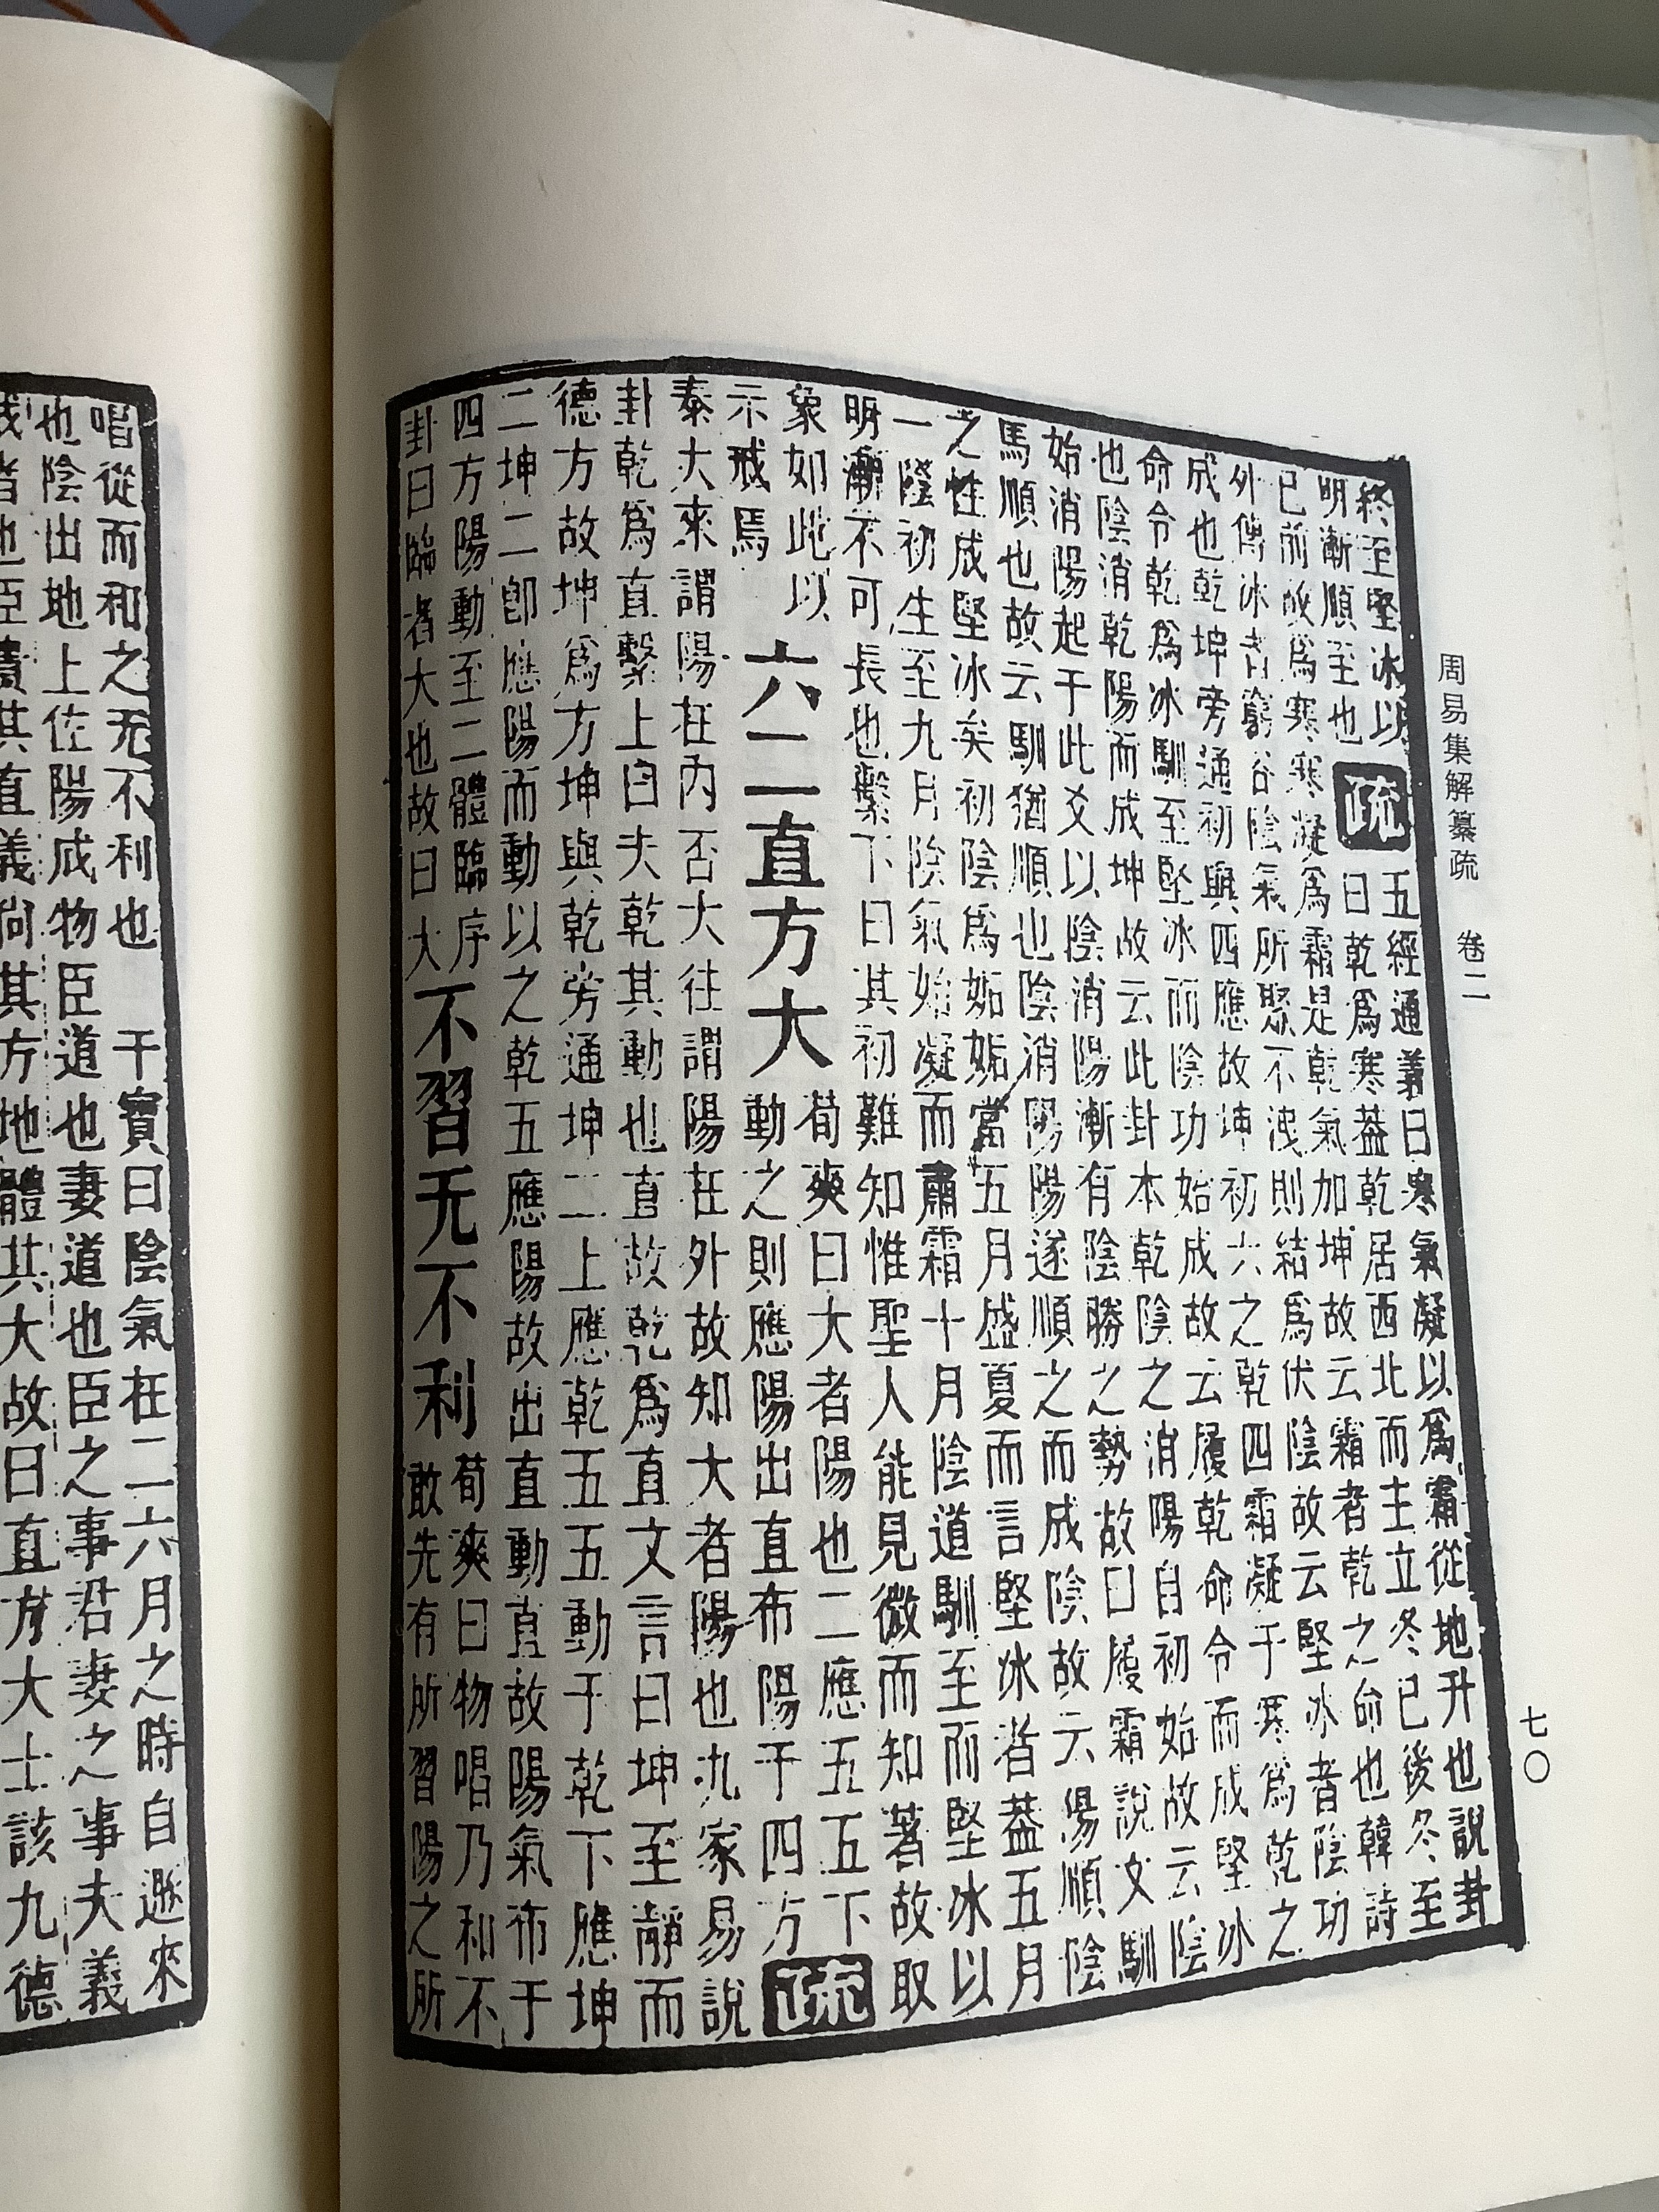 周易集解纂疏 卷二
七〇
終至堅冰以
明漸順至也
疏
五經通義曰寒氣凝以爲霜從地升也說卦
曰乾爲寒蓋乾居西北而主立冬已後冬至
已前故爲寒寒凝爲霜是乾氣加坤故云霜者乾之命也韓詩
外傳冰者窮谷陰氣所聚不洩則結爲伏陰故云堅冰者陰功
成也乾坤旁通初與四應故坤初六之乾四霜凝于寒爲乾之
命令乾爲冰馴至堅冰而陰功始成故云履乾命令而成堅冰
也陰消乾陽而成坤故云此卦本乾陰之消陽自初始故云陰
始消陽起于此爻以陰消陽漸有陰勝之勢故曰履霜說文馴
馬順也故云馴猶順也陰消陽陽遂順之而成陰故云陽順陰
之性成堅冰矣初陰爲姤姤當五月盛夏而言堅冰者蓋五月
一陰初生至九月陰氣始凝而肅霜十月陰道馴至而堅冰以
明漸不可長也繫下曰其初難知惟聖人能見微而知著故取
象如此以
示戒焉
六二直方大
荀爽曰大者陽也二應五五下
動之則應陽出直布陽于四方
疏
泰大來謂陽在內否大往謂陽在外故知大者陽也九家易說
卦乾爲直繫上曰夫乾其動也直故乾爲直文言曰坤至靜而
德方故坤爲方坤與乾旁通坤二上應乾五五動于乾下應坤
二坤二卽應陽而動以之乾五應陽故出直動直故陽氣布于
四方陽動至二體臨序
卦曰臨者大也故曰大
不習无不利
荀爽曰物唱乃和不
敢先有所習陽之所
唱從而和之无不利也 干寶曰陰氣在二六月之時自遯來
也陰出地上佐陽成物臣道也妻道也臣之事君妻之事夫義
成者也臣貴其直義尚其方地體其大故曰直方大士該九德